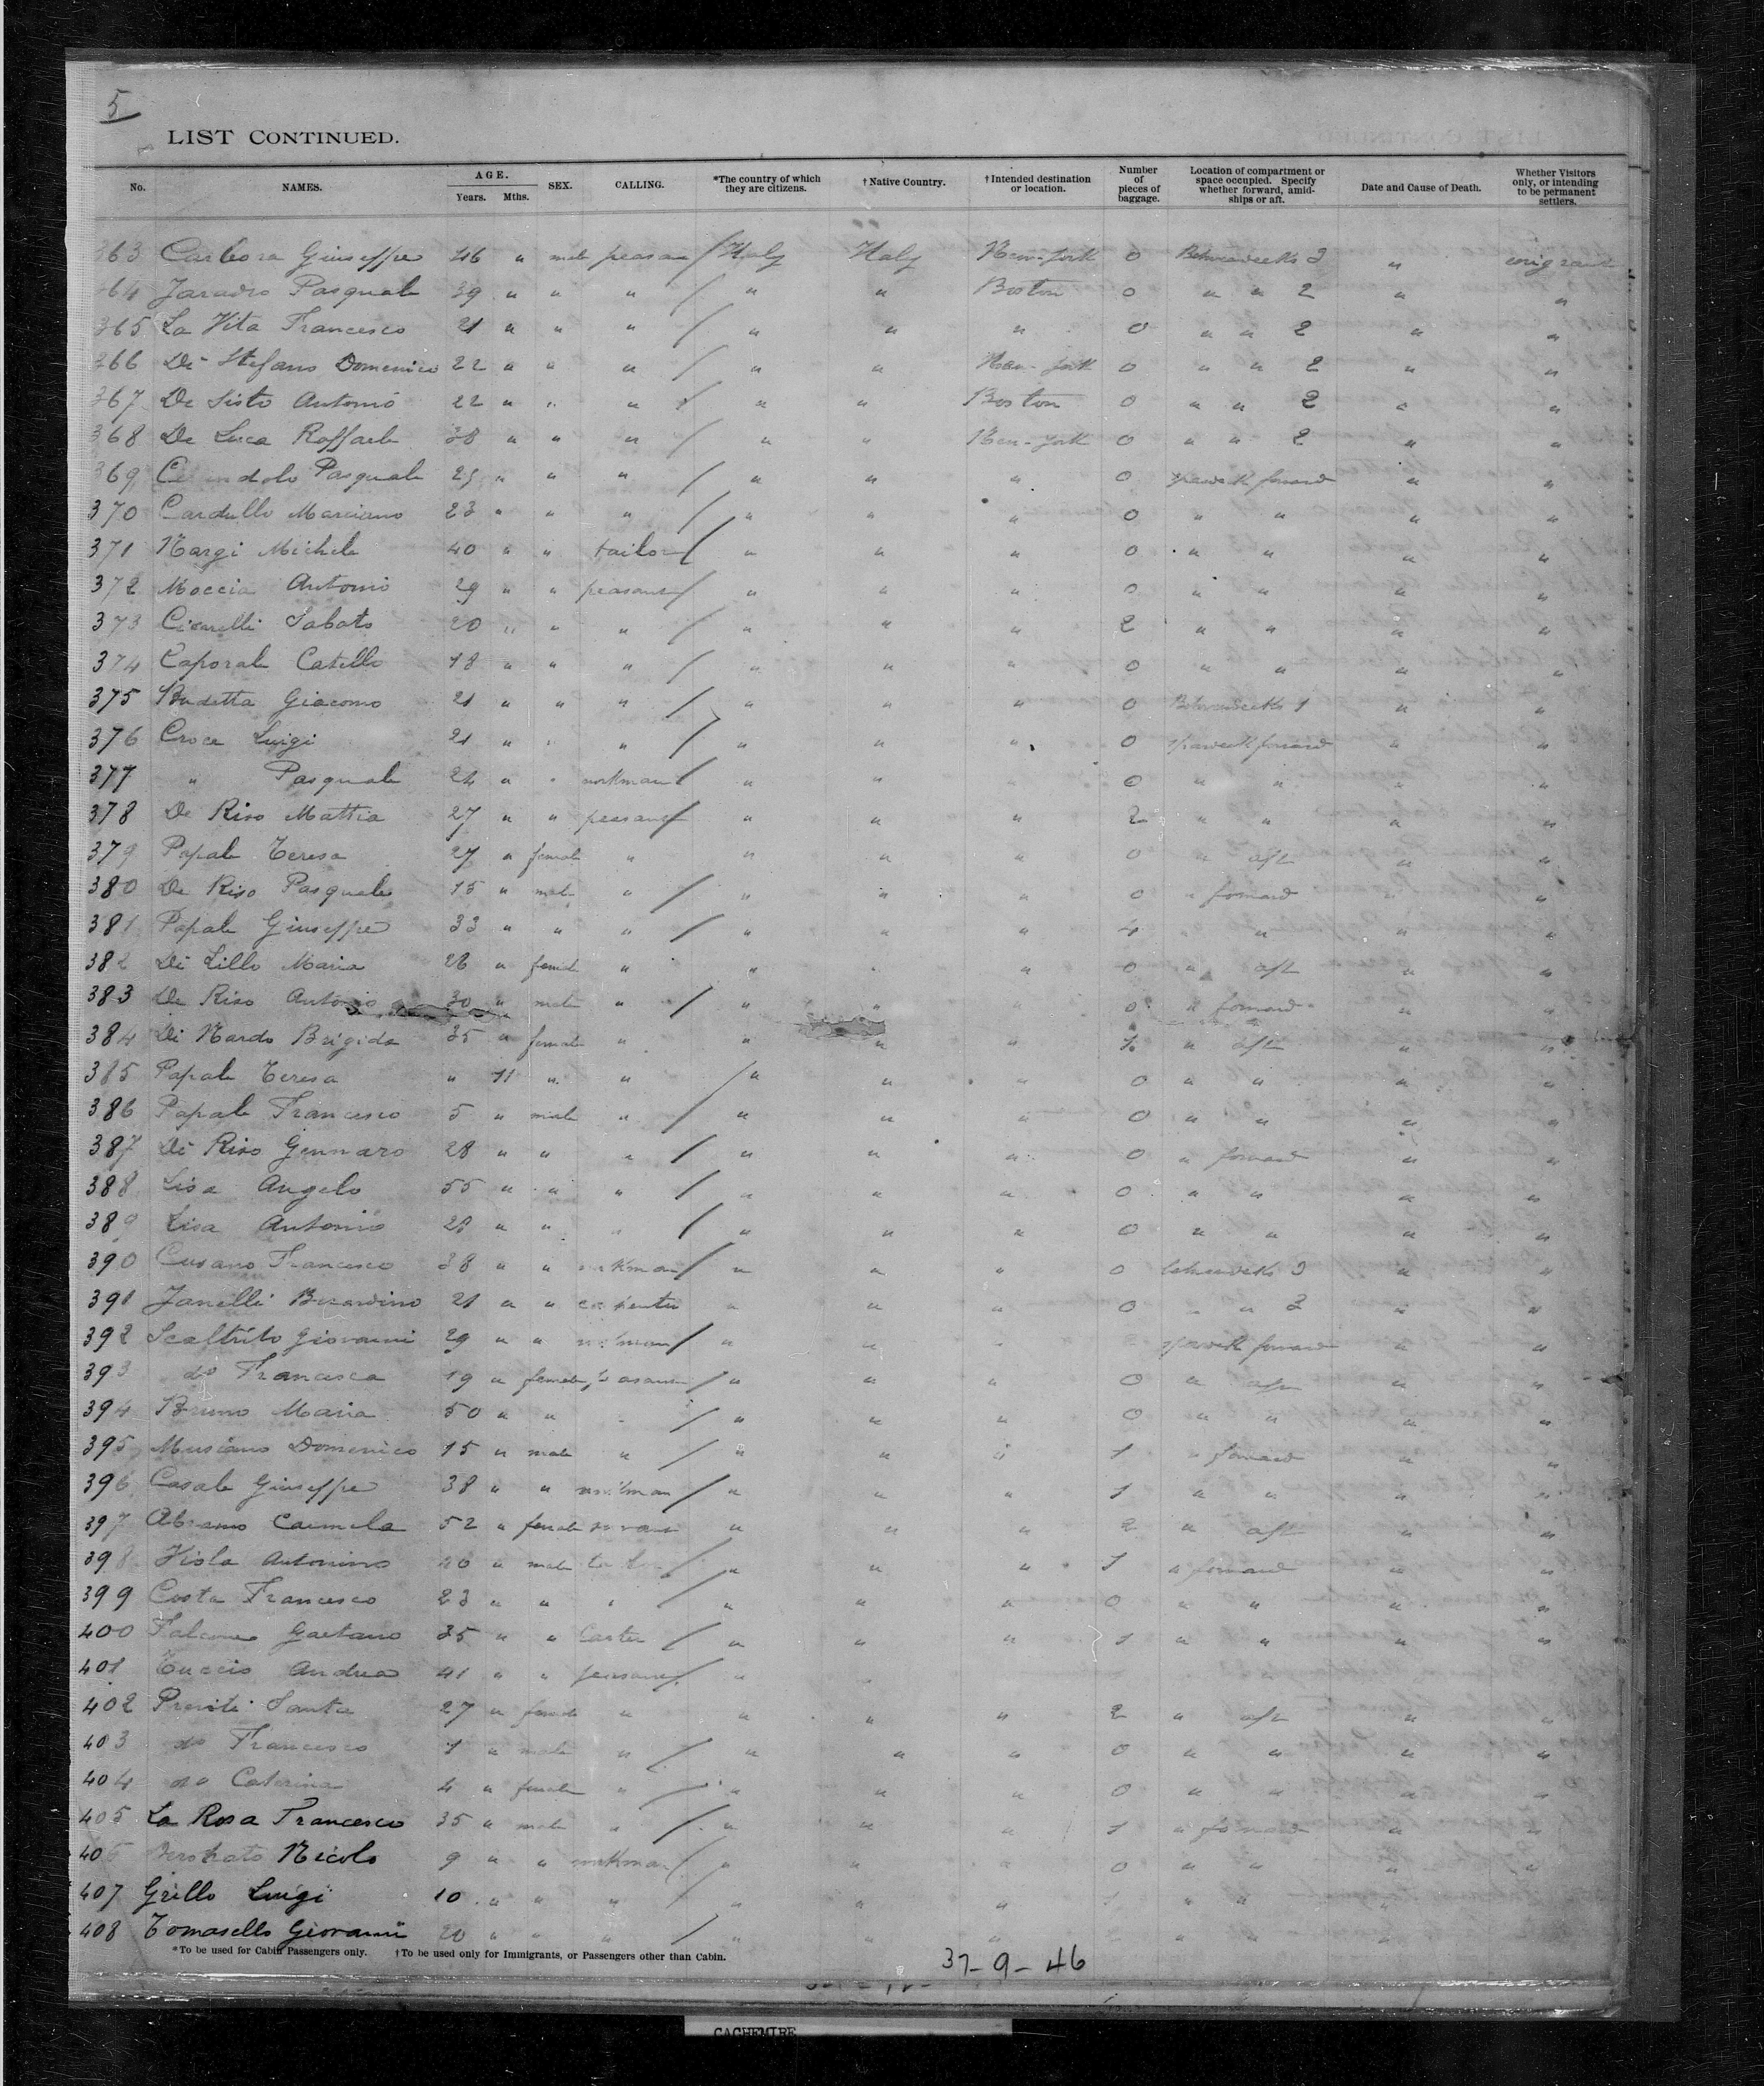 5
LIST CONTINUED.
No. NAMES. AGE. Years. Mths. SEX. CALLING. *The country of which they are citizens. †Native Country. †Intended destination or location. Number of pieces of baggage. Location of compartment or space occupied. Specify whether forward, amidships or aft. Date and Cause of Death. Whether Visitors only, or intending to be permanent settlers.
363 Carbora Giuseppe 46 " male peasant / Italy Italy New-York 0 Betweendecks 3 "
364 Pasquale 39 " " " / " " Boston 0 " " 2 " "
365 La Vita Francesco 21 " " " / " " " 0 " " 2 " "
366 Di Stefano Domenico 22 " " " / " " New-York 0 " " 2 " "
367 De Sisto Antonio 22 " " " / " " Boston 0 " " 2 " "
368 De Luca Raffaele 38 " " " / " " New-York 0 " " 2 " "
369 Pasquale " " " / " " " 0 forward " "
370 Cardullo Marciano 23 " " " / " " " 0 " " " "
371 Nargi Michele 40 " " tailor / " " " 0 " " " "
372 Moccia Antonio 29 " " peasant / " " " 0 " " " "
373 Cicarelli Sabato 20 " " " / " " " 2 " " " "
374 Caporale Catello 18 " " " / " " " 0 " " " "
375 Budetta Giacomo 21 " " " / " " " 0 Betweendecks 1 " "
376 Croce Luigi 21 " " " / " " " 0 forward " "
377 " Pasquale 24 " " workman / " " " 0 " " " "
378 De Riso Mattia 27 " " peasant / " " " 2 " " " "
379 Papale Teresa 27 " female " " " " 0 " aft " "
380 De Riso Pasquale 15 " male " / " " " 0 " forward " "
381 Papale Giuseppe 33 " " " / " " " 4 " " " "
382 Di Lillo Maria 26 " female " " " " 0 " aft " "
383 De Riso Antonio 30 " male " / " " " 0 " forward " "
384 Di Nardo Brigida 35 " female " " " " 1 " aft " "
385 Papale Teresa " 11 " " / " " " 0 " " " "
386 Papale Francesco 5 " male " / " " " 0 " " " "
387 Di Riso Gennaro 28 " " " / " " " 0 " forward " "
388 Lisa Angelo 55 " " " / " " " 0 " " " "
389 Lisa Antonio 28 " " " / " " " 0 " " " "
390 Cusano Francesco 38 " " workman / " " " 0 betweendecks 3 " "
391 Janelli Berardino 21 " " carpenter " " " 0 " " 3 " "
392 Scaltrito Giovanni 29 " " workman / " " " forward " "
393 do Francesca 19 " female peasant / " " " 0 " aft " "
394 Bruno Maria 50 " " " / " " " 0 " " " "
395 Musiano Domenico 15 " male " / " " " 1 " forward " "
396 Casale Giuseppe 38 " " workman / " " " 1 " " " "
397 Abramo Carmela 52 " female " " " 2 " aft " "
398 Viola Antonino 40 " male / " " " 1 " forward " "
399 Costa Francesco 23 " " " / " " " 0 " " " "
400 Falcone Gaetano 35 " " Carter / " " " 1 " " " "
401 Tuccio Andrea 41 " " peasant / "
402 Previti Santa 27 " female " " " " 2 " aft " "
403 do Francesco 1 " male " / " " " 0 " " " "
404 do Caterina 4 " female " / " " " 0 " " " "
405 La Rosa Francesco 35 " male " / " " " 1 " forward " "
406 Nicolo 9 " " workman / " " " 0 " " " "
407 Grillo Luigi 10 " " " / " " " " " " "
408 Tomasello Giovanni 20 " " " / " " " " " "
*To be used for Cabin Passengers only. †To be used only for Immigrants, or Passengers other than Cabin.
37-9-46
CACHEMIRE